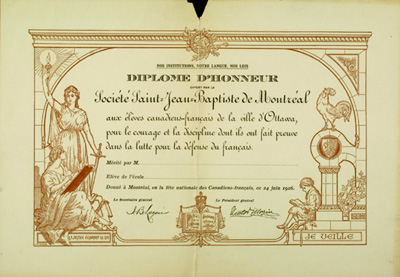 NOS INSTITUTIONS, NOTRE LANGUE, NOS LOIS
DIPLOME D'HONNEUR
OFFERT PAR LA
Société Saint-Jean-Baptiste de Montréal
aux élèves canadiens-français de la ville d'Ottawa,
pour le courage et la discipline dont ils ont fait preuve
dans la lutte pour la défense du français.
Mérité par M.
Elève de l'école
Donné à Montréal, en la fête nationale des Canadiens-français, ce 24 juin 1916.
Le Secrétaire général
Le Président général
JE VEILLE